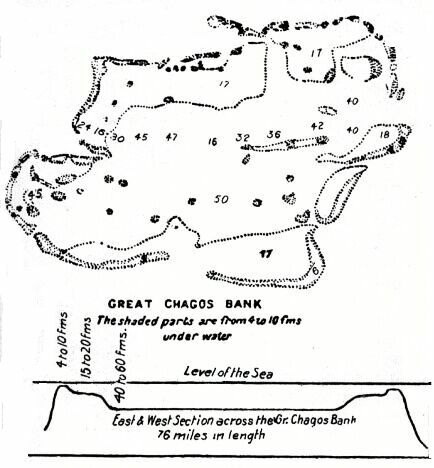 17
17
40
24 16 30 45 47 16 32 36 42 40 18
45
50
17
6
GREAT CHAGOS BANK
The shaded parts are from 4 to 10 fms
under water
4 to 10 fms
15 to 20 fms
40 to 60 fms.
Level of the Sea
East & West Section across the Gr. Chagos Bank
76 miles in length